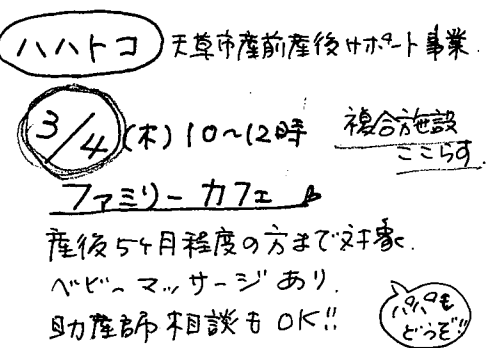 ハハトコ 天草市産前産後サポート事業.
3/4(木)10〜12時 複合施設
ここらす.
ファミリーカフェ
産後5ヶ月程度の方まで対象.
ベビーマッサージあり.
助産師相談もOK!!
パパも
どうぞ!!